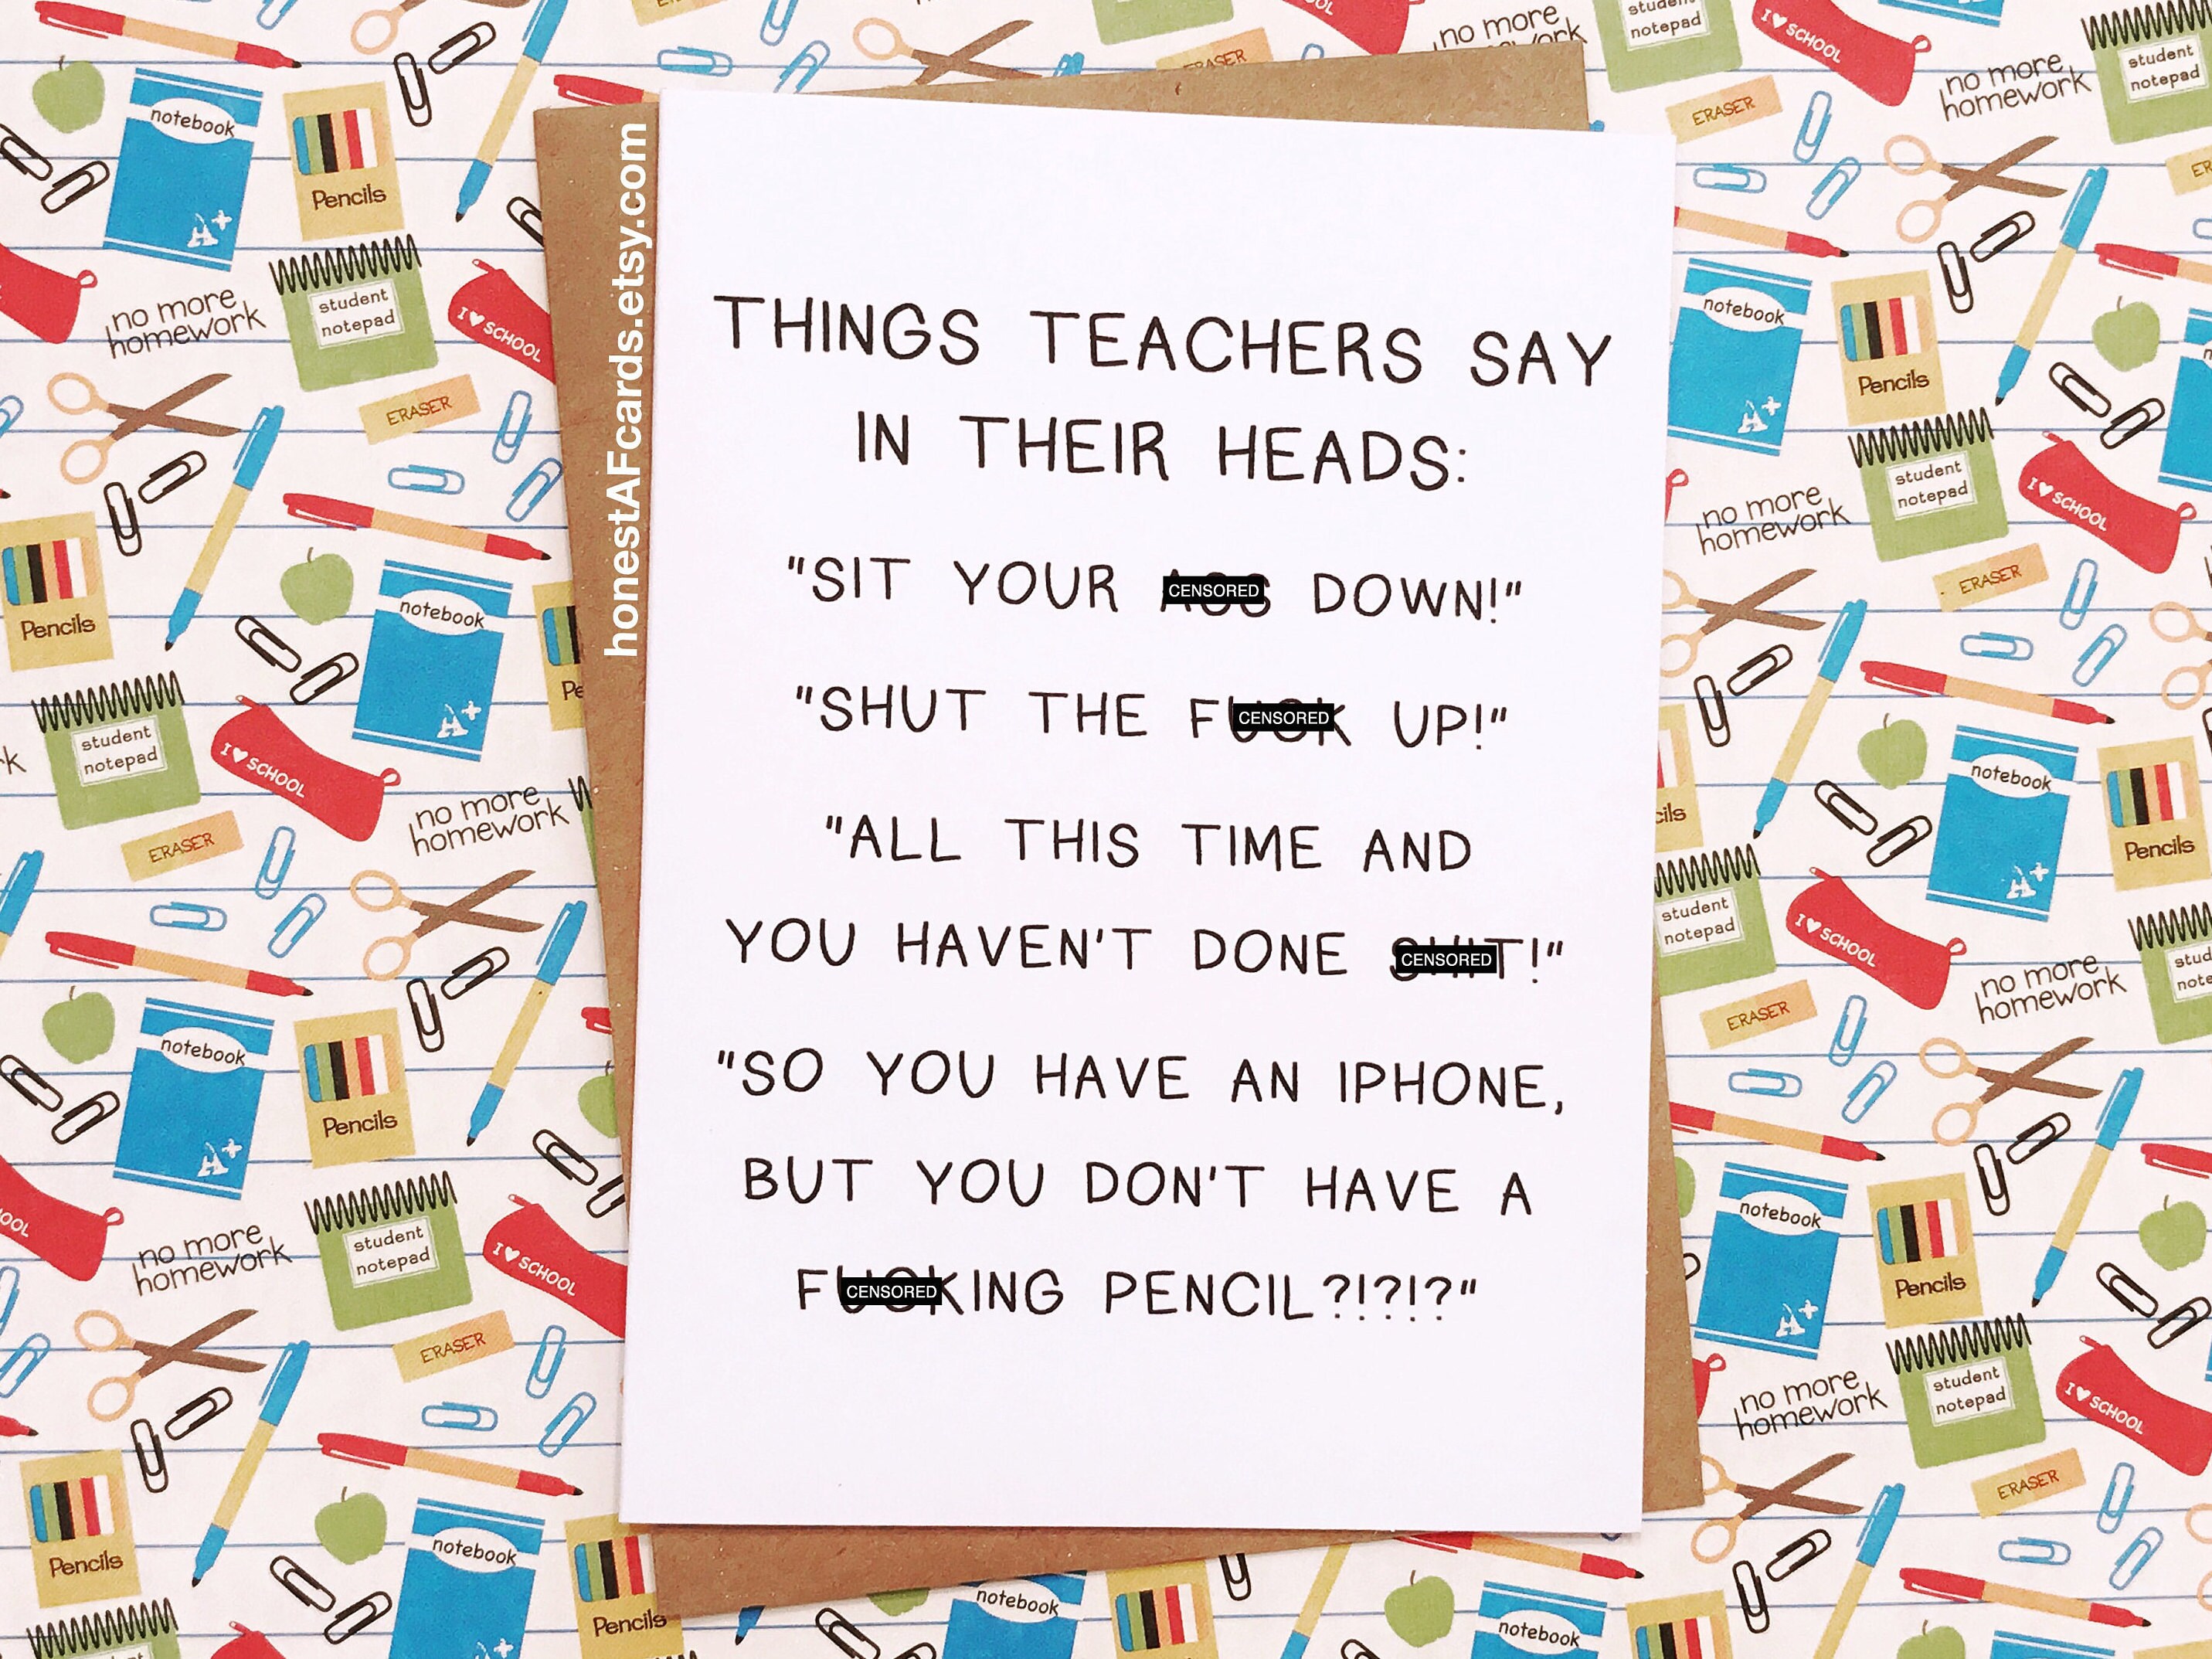 honestAFcards.etsy.com
THINGS TEACHERS SAY
IN THEIR HEADS:
"SIT YOUR CENSORED DOWN!"
"SHUT THE F CENSORED K UP!"
"ALL THIS TIME AND
YOU HAVEN'T DONE CENSORED T!"
"SO YOU HAVE AN IPHONE,
BUT YOU DON'T HAVE A
F CENSORED KING PENCIL?!?!?"
notebook
A+
Pencils
student
notepad
I ♥ SCHOOL
no more
homework
ERASER